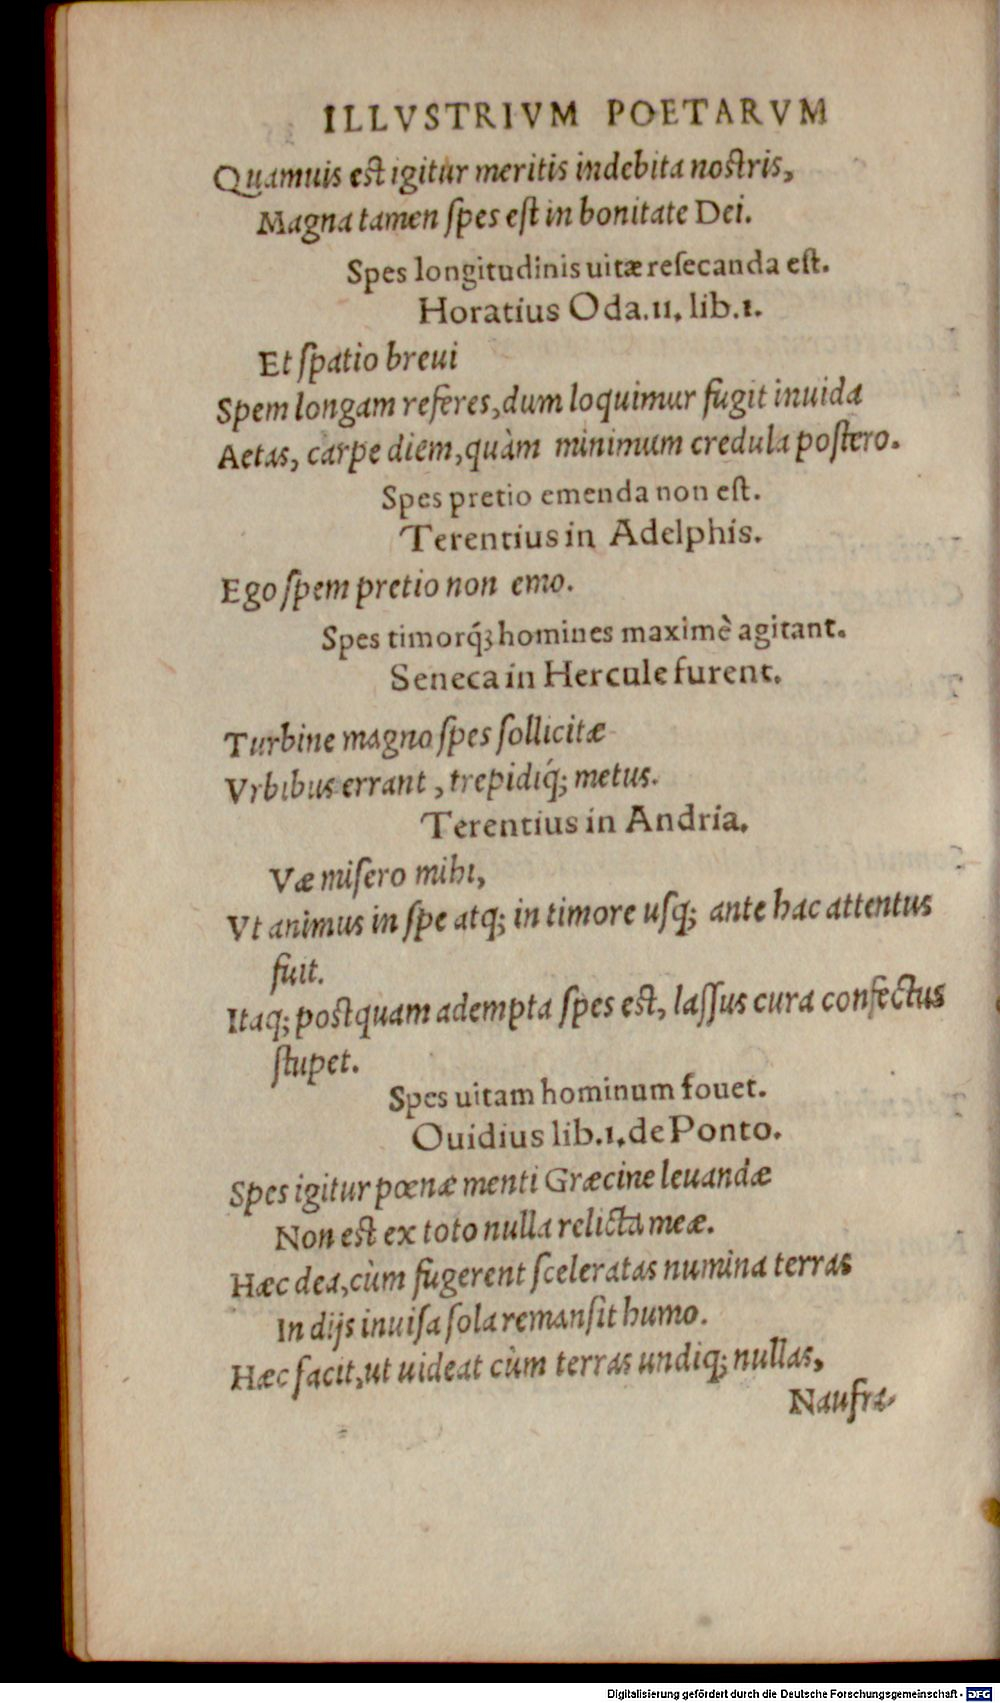 ILLVSTRIVM POETARVM
Quamuis est igitur meritis indebita nostris,
Magna tamen spes est in bonitate Dei.
Spes longitudinis uitæ resecanda est.
Horatius Oda.11. lib.1.
Et spatio breui
Spem longam referes,dum loquimur fugit inuida
Aetas, carpe diem,quàm minimum credula postero.
Spes pretio emenda non est.
Terentius in Adelphis.
Ego spem pretio non emo.
Spes timorq́; homines maximè agitant.
Seneca in Hercule furent.
Turbine magno spes sollicitæ
Vrbibus errant , trepidiq́; metus.
Terentius in Andria.
Væ misero mihi,
Vt animus in spe atq; in timore usq; ante hac attentus
fuit.
Itaq; postquam adempta spes est, lassus cura confectus
stupet.
Spes uitam hominum fouet.
Ouidius lib.1.de Ponto.
Spes igitur pœnæ menti Græcine leuandæ
Non est ex toto nulla relicta meæ.
Hæc dea,cùm fugerent sceleratas numina terras
In dijs inuisa sola remansit humo.
Hæc facit,ut uideat cùm terras undiq; nullas,
Naufra-
Digitalisierung gefördert durch die Deutsche Forschungsgemeinschaft - DFG